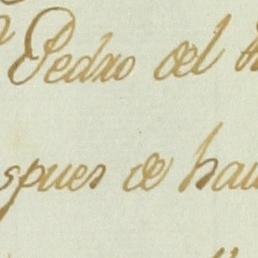 Pedro del
spues de hau